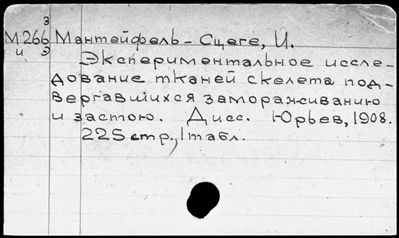 3
М 266 Мантейфель-Сцеге, И.
и э Экспериментальное иссле-
дование тканей скелета под-
вергавшихся замораживанию
и застою. Дисс. Юрьев, 1908.
225 стр., 1 табл.